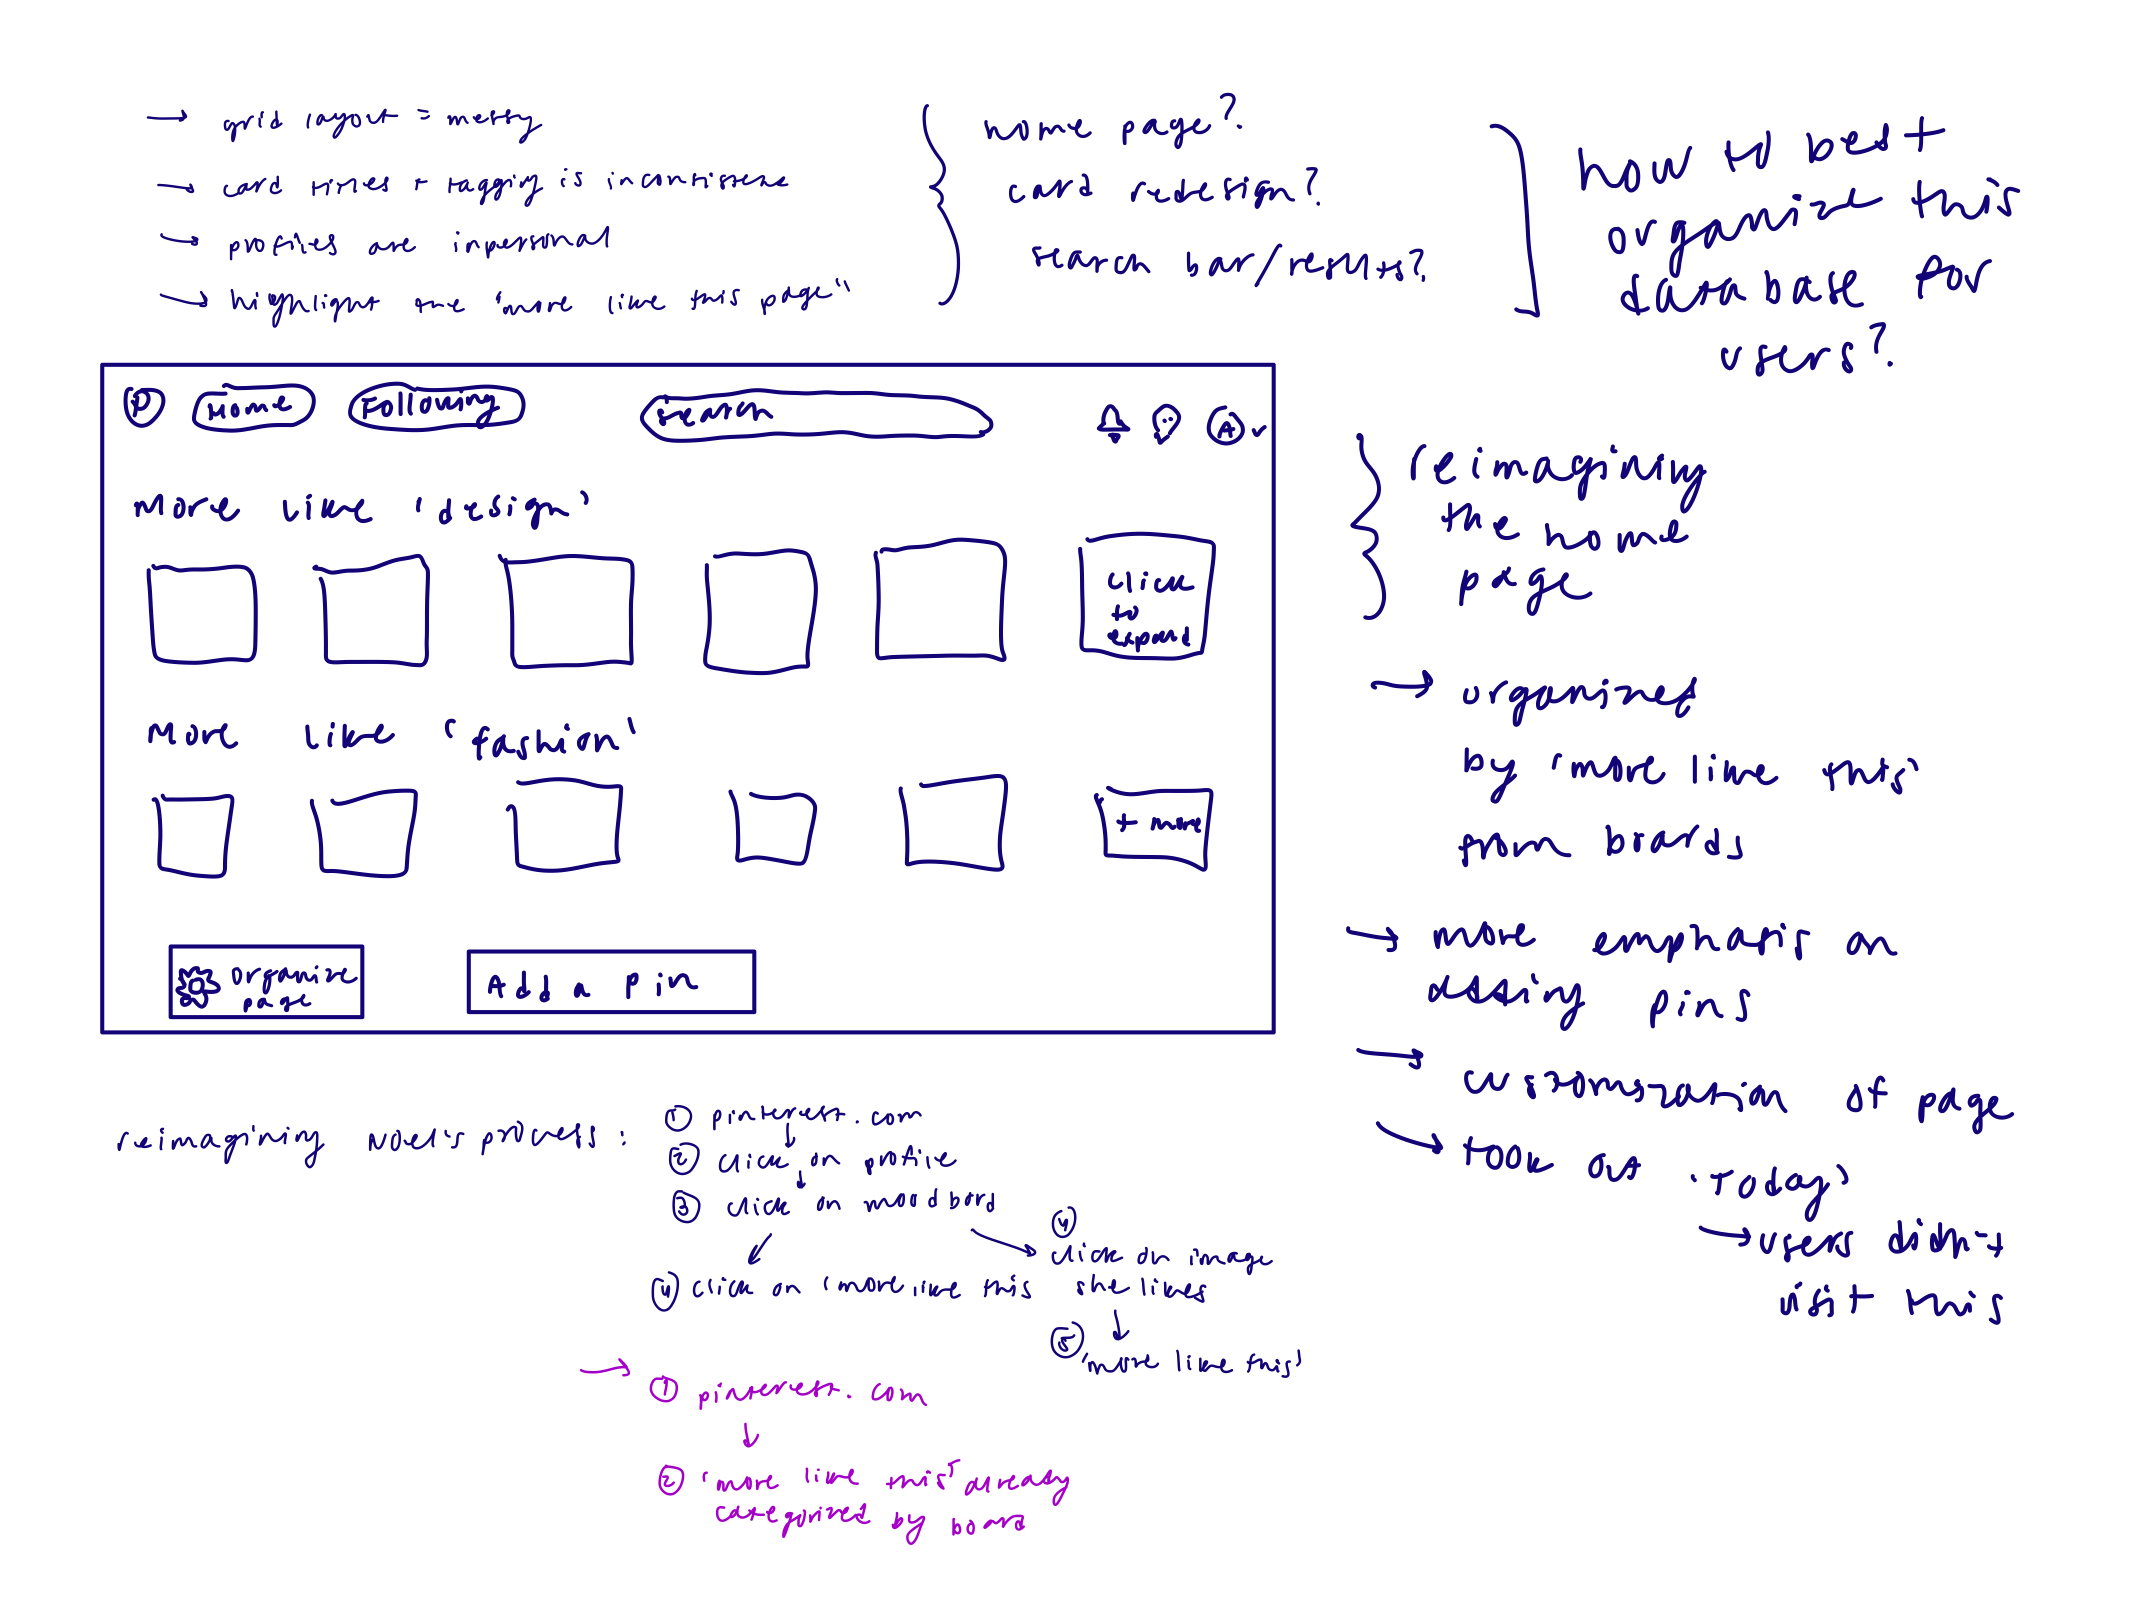 → grid layout = messy
→ card titles + tagging is inconsistent
→ profiles are inpersonal
→ highlight the "more like this page"
home page?
card redesign?
search bar/results?
how to best
organize this
database for
users?
P Home Following search A
More like 'design'
click
to
expand
More like 'fashion'
+ more
organize
page
Add a pin
reimagining
the home
page
→ organized
by 'more like this'
from boards
→ more emphasis on
adding pins
→ customization of page
→ took out 'Today'
→ users didn't
visit this
reimagining Noel's process:
① pinterest.com
② click on profile
③ click on mood bord
④ click on 'more like this
④
click on image
she likes
⑤
'more like this'
→ ① pinterest.com
② 'more like this' already
categorized by board